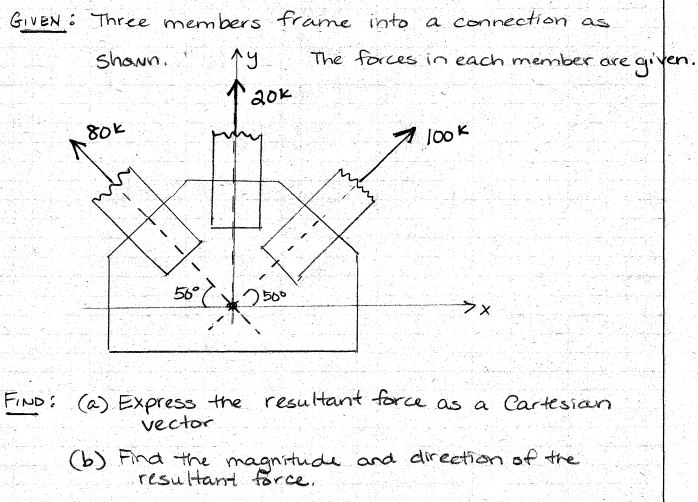 GIVEN: Three members frame into a connection as
shown. The forces in each member are given.
y
20k
80k
100k
50° 50°
x
FIND: (a) Express the resultant force as a Cartesian
vector
(b) Find the magnitude and direction of the
resultant force.